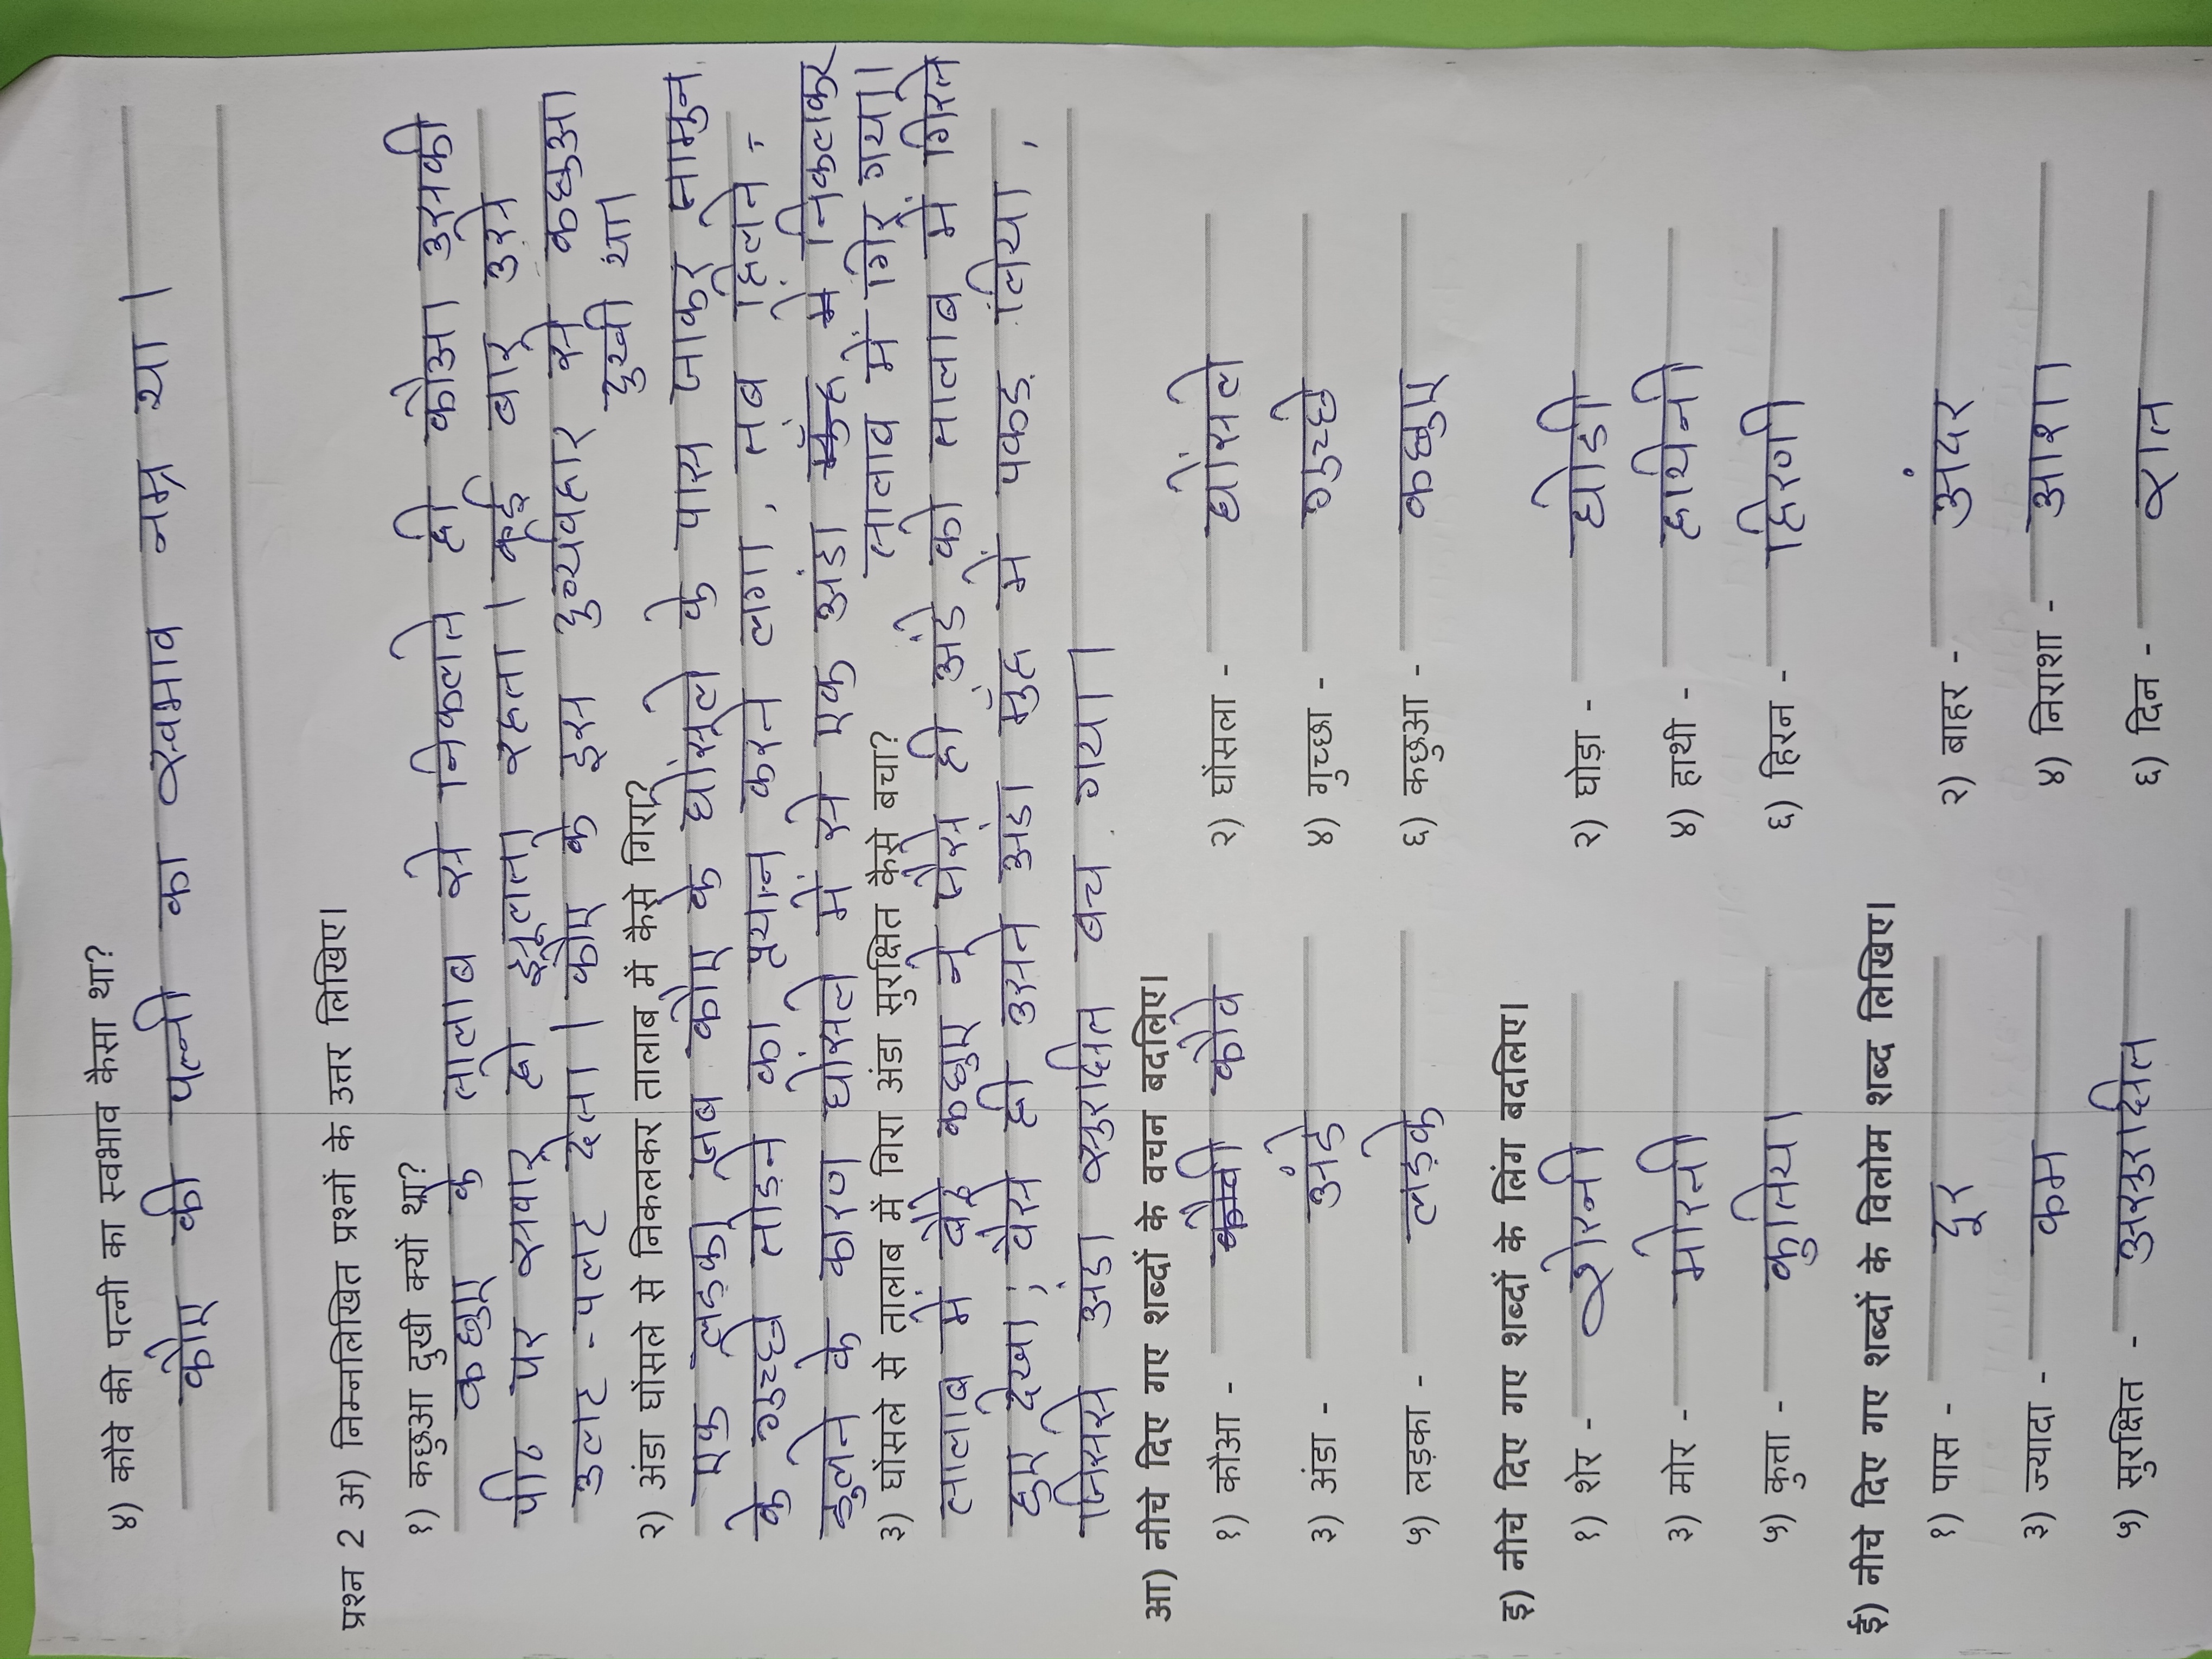 ४) कौवे की पत्नी का स्वभाव कैसा था?
कौए की पत्नी का स्वभाव नम्र था।
प्रश्न 2 अ) निम्नलिखित प्रश्नों के उत्तर लिखिए।
१) कछुआ दुखी क्यों था?
कछुए के तालाब से निकलते ही कौआ उसकी
पीठ पर सवार हो झूलता रहता। कई बार उसे
उलट-पलट देता। कौए के इस दुर्व्यवहार से कछुआ
दुखी था।
२) अंडा घोंसले से निकलकर तालाब में कैसे गिरा?
एक लड़का जब कौए के घोंसले के पास जाकर जामुन
के गुच्छे तोड़ने का प्रयत्न करने लगा, तब हिलने-
डुलने के कारण घोंसले में से एक अंडा निकलकर
तालाव में गिर गया।
३) घोंसले से तालाब में गिरा अंडा सुरक्षित कैसे बचा?
तालाब में बैठे कछुए ने जैसे ही अंडे को तालाब में गिरते
हुए देखा; वैसे ही उसने अंडा मुँह में पकड लिया,
जिससे अंडा सुरक्षित बच गया।
आ) नीचे दिए गए शब्दों के वचन बदलिए।
१) कौआ - कौवे २) घोंसला - घोंसले
३) अंडा - अंडे ४) गुच्छा - गुच्छे
५) लड़का - लड़के ६) कछुआ - कछुए
इ) नीचे दिए गए शब्दों के लिंग बदलिए।
१) शेर - शेरनी २) घोड़ा - घोडी
३) मोर - मोरनी ४) हाथी - हाथिनी
५) कुत्ता - कुतिया ६) हिरन - हिरणी
ई) नीचे दिए गए शब्दों के विलोम शब्द लिखिए।
१) पास - दूर २) बाहर - अंदर
३) ज्यादा - कम ४) निराशा - आशा
५) सुरक्षित - असुरक्षित ६) दिन - रात